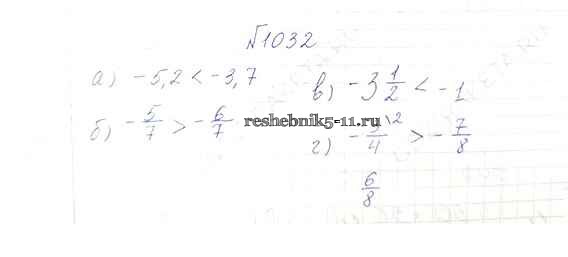 №1032
а) -5,2 < -3,7
б) -5/7 > -6/7
в) -3 1/2 < -1
г) -3/4 \2 > -7/8
6/8
reshebnik5-11.ru